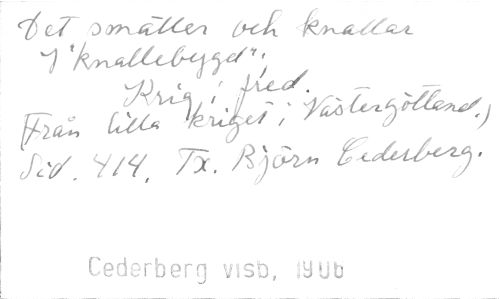 Det smäller och knallar
I "knallebygd".
Krig i fred.
(Från lilla kriget i Västergötland.)
Sid. 414. Tx. Björn Cederberg.
Cederberg visb, 1906